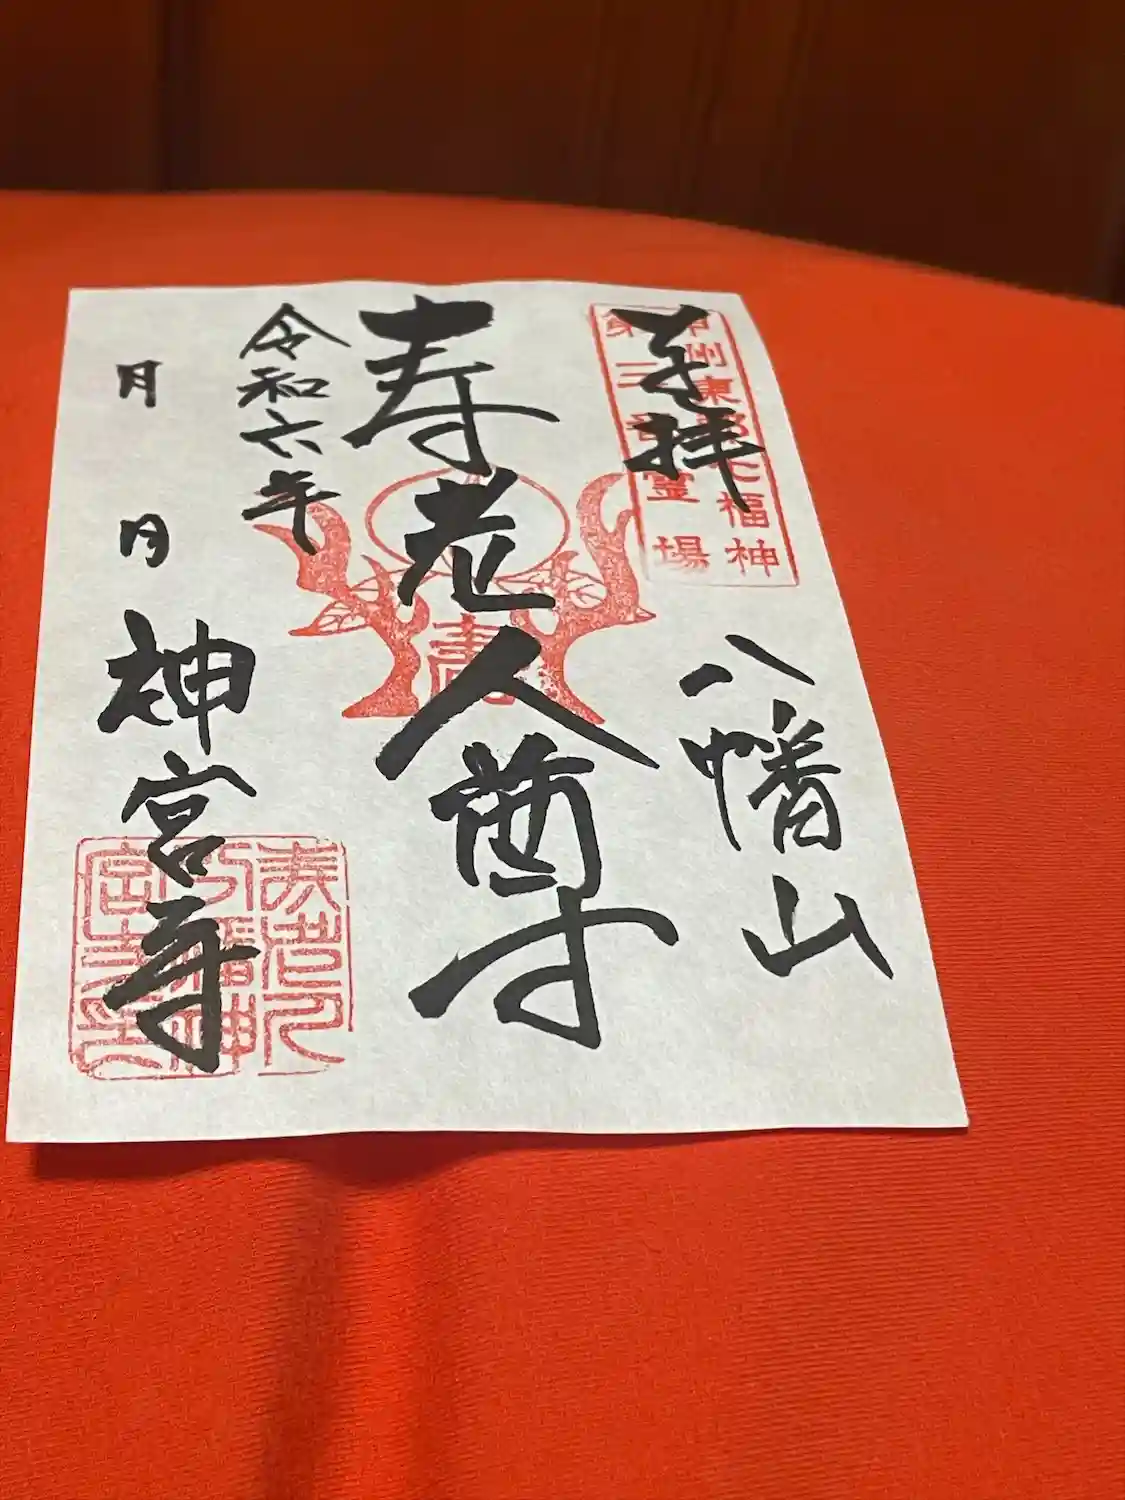 奉拝
甲州東郡七福神
第二番霊場
八幡山
寿老人尊
寿
令和六年
月 日
神宮寺